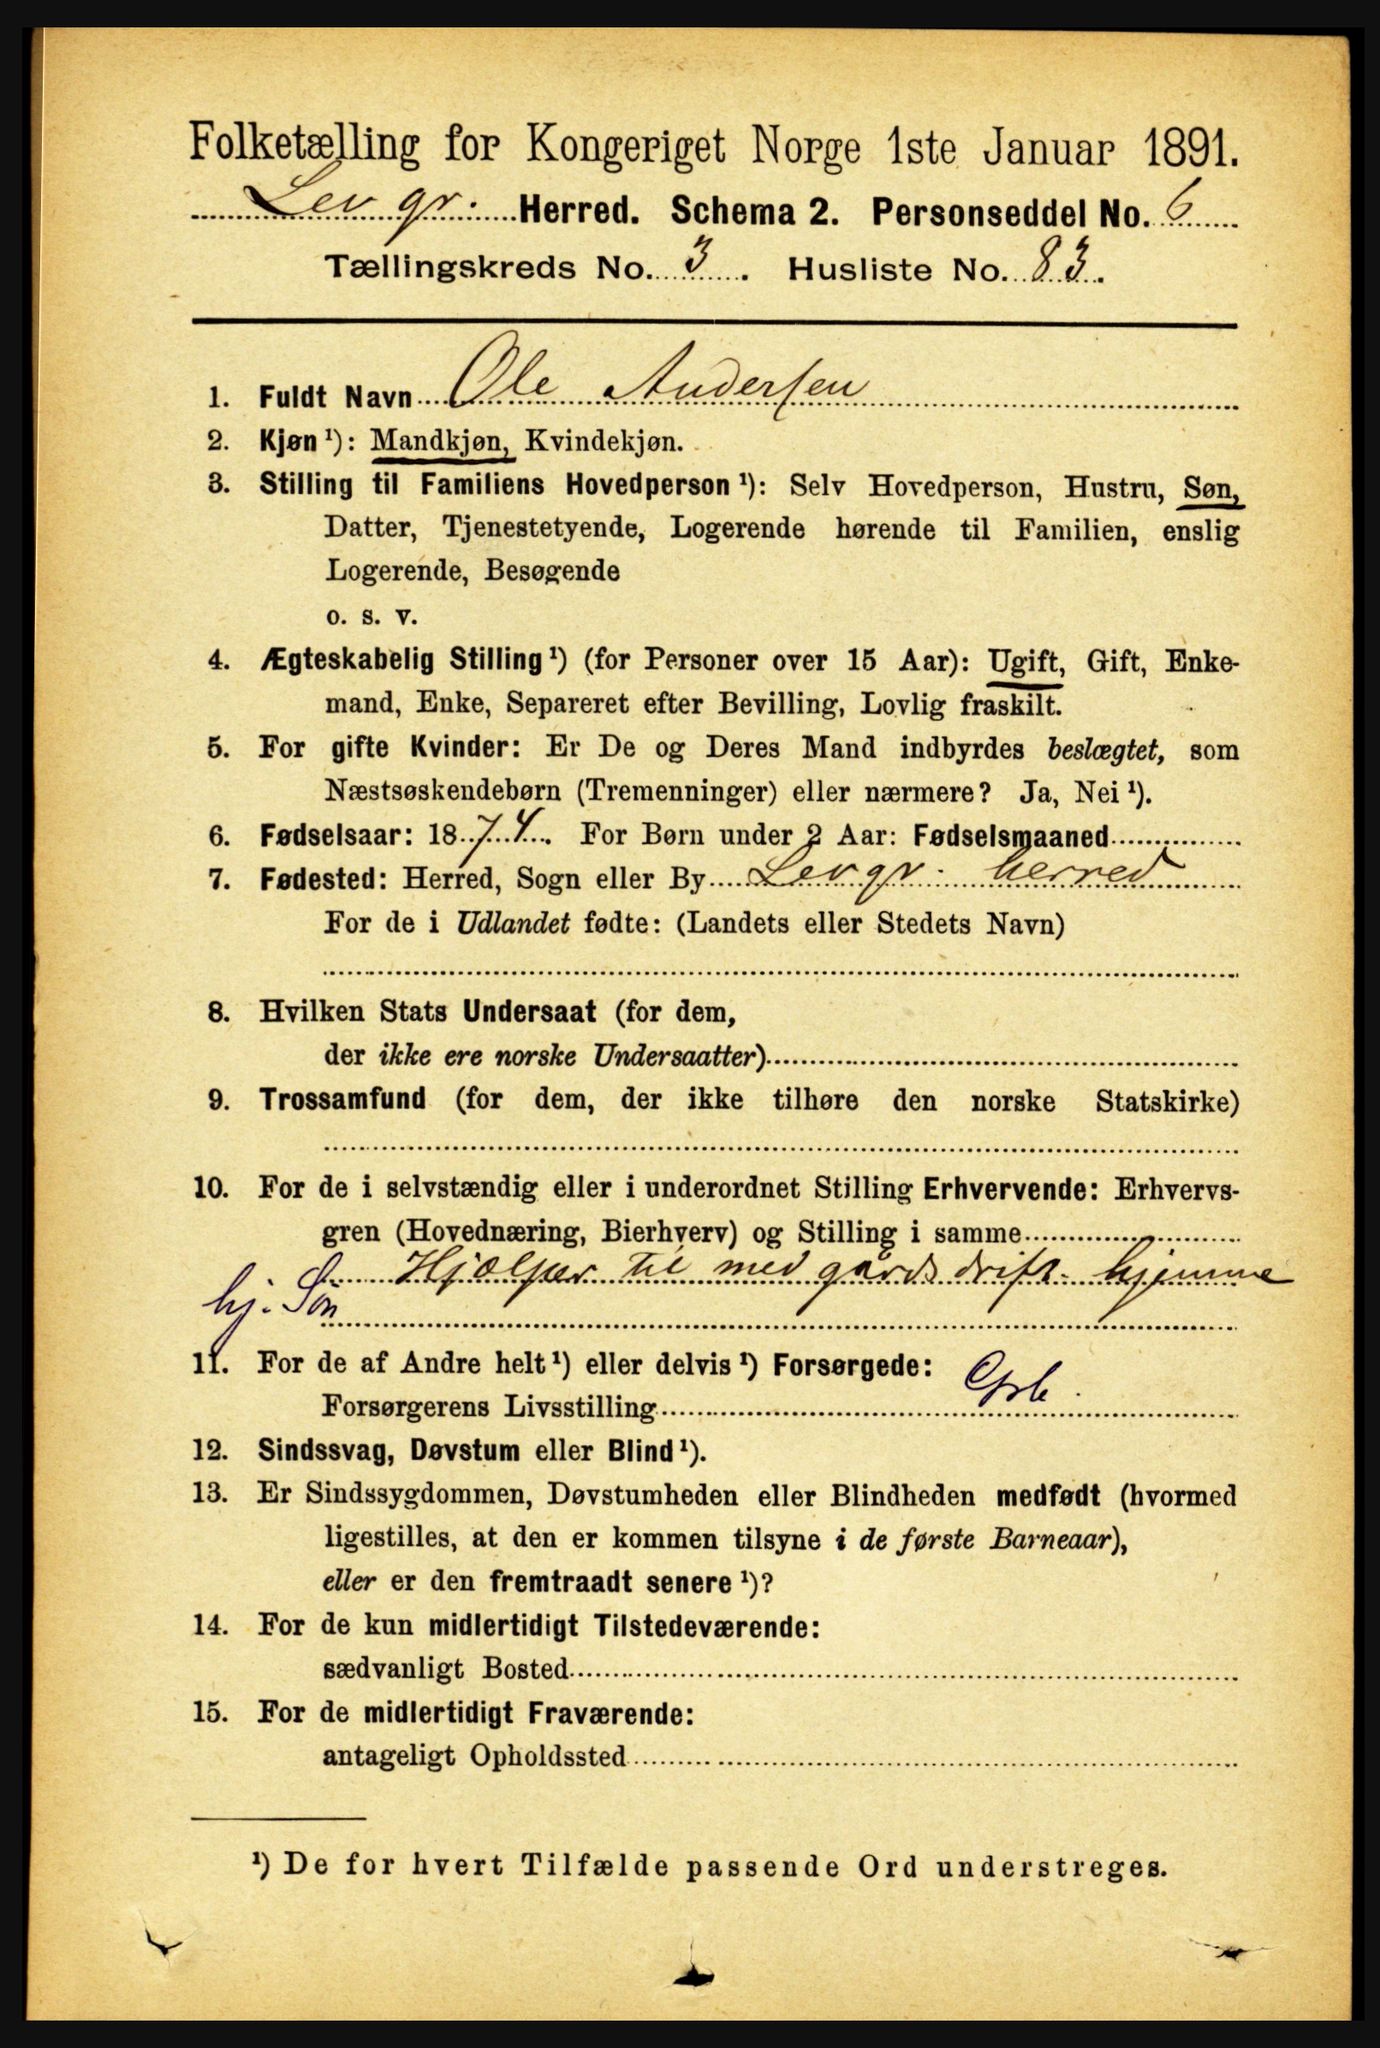 Folketælling for Kongeriget Norge 1ste Januar 1891.
Lev gr. Herred. Schema 2. Personseddel No. 6
Tællingskreds No. 3. Husliste No. 83.
1. Fuldt Navn Ole Andersen
2. Kjøn ¹): Mandkjøn, Kvindekjøn.
3. Stilling til Familiens Hovedperson ¹): Selv Hovedperson, Hustru, Søn,
Datter, Tjenestetyende, Logerende hørende til Familien, enslig
Logerende, Besøgende
o. s. v.
4. Ægteskabelig Stilling ¹) (for Personer over 15 Aar): Ugift, Gift, Enke-
mand, Enke, Separeret efter Bevilling, Lovlig fraskilt.
5. For gifte Kvinder: Er De og Deres Mand indbyrdes beslægtet, som
Næstsøskendebørn (Tremenninger) eller nærmere? Ja, Nei ¹).
6. Fødselsaar: 1874. For Børn under 2 Aar: Fødselsmaaned
7. Fødested: Herred, Sogn eller By Lev gr. herred
For de i Udlandet fødte: (Landets eller Stedets Navn)
8. Hvilken Stats Undersaat (for dem,
der ikke ere norske Undersaatter)
9. Trossamfund (for dem, der ikke tilhøre den norske Statskirke)
10. For de i selvstændig eller i underordnet Stilling Erhvervende: Erhvervs-
gren (Hovednæring, Bierhverv) og Stilling i samme
S. Hjælper til med gårdsdrift hjemme
hj. Søn
11. For de af Andre helt ¹) eller delvis ¹) Forsørgede:
Forsørgerens Livsstilling Gsb.
12. Sindssvag, Døvstum eller Blind ¹).
13. Er Sindssygdommen, Døvstumheden eller Blindheden medfødt (hvormed
ligestilles, at den er kommen tilsyne i de første Barneaar),
eller er den fremtraadt senere ¹)?
14. For de kun midlertidigt Tilstedeværende:
sædvanligt Bosted
15. For de midlertidigt Fraværende:
antageligt Opholdssted
¹) De for hvert Tilfælde passende Ord understreges.